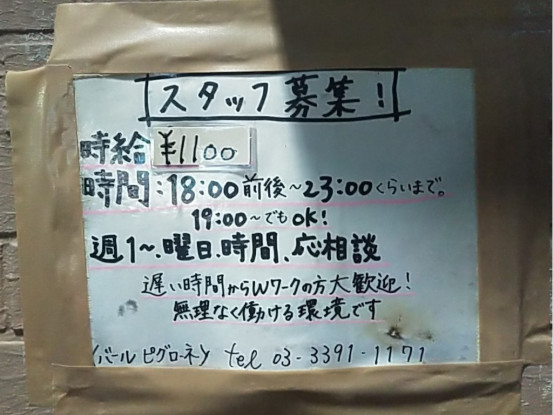 スタッフ募集!
時給 ¥1100
時間:18:00前後~23:00くらいまで。
19:00~でもOK!
週1~、曜日、時間、応相談
遅い時間からWワークの方大歓迎!
無理なく働ける環境です
バールピグローネ tel 03-3391-1171